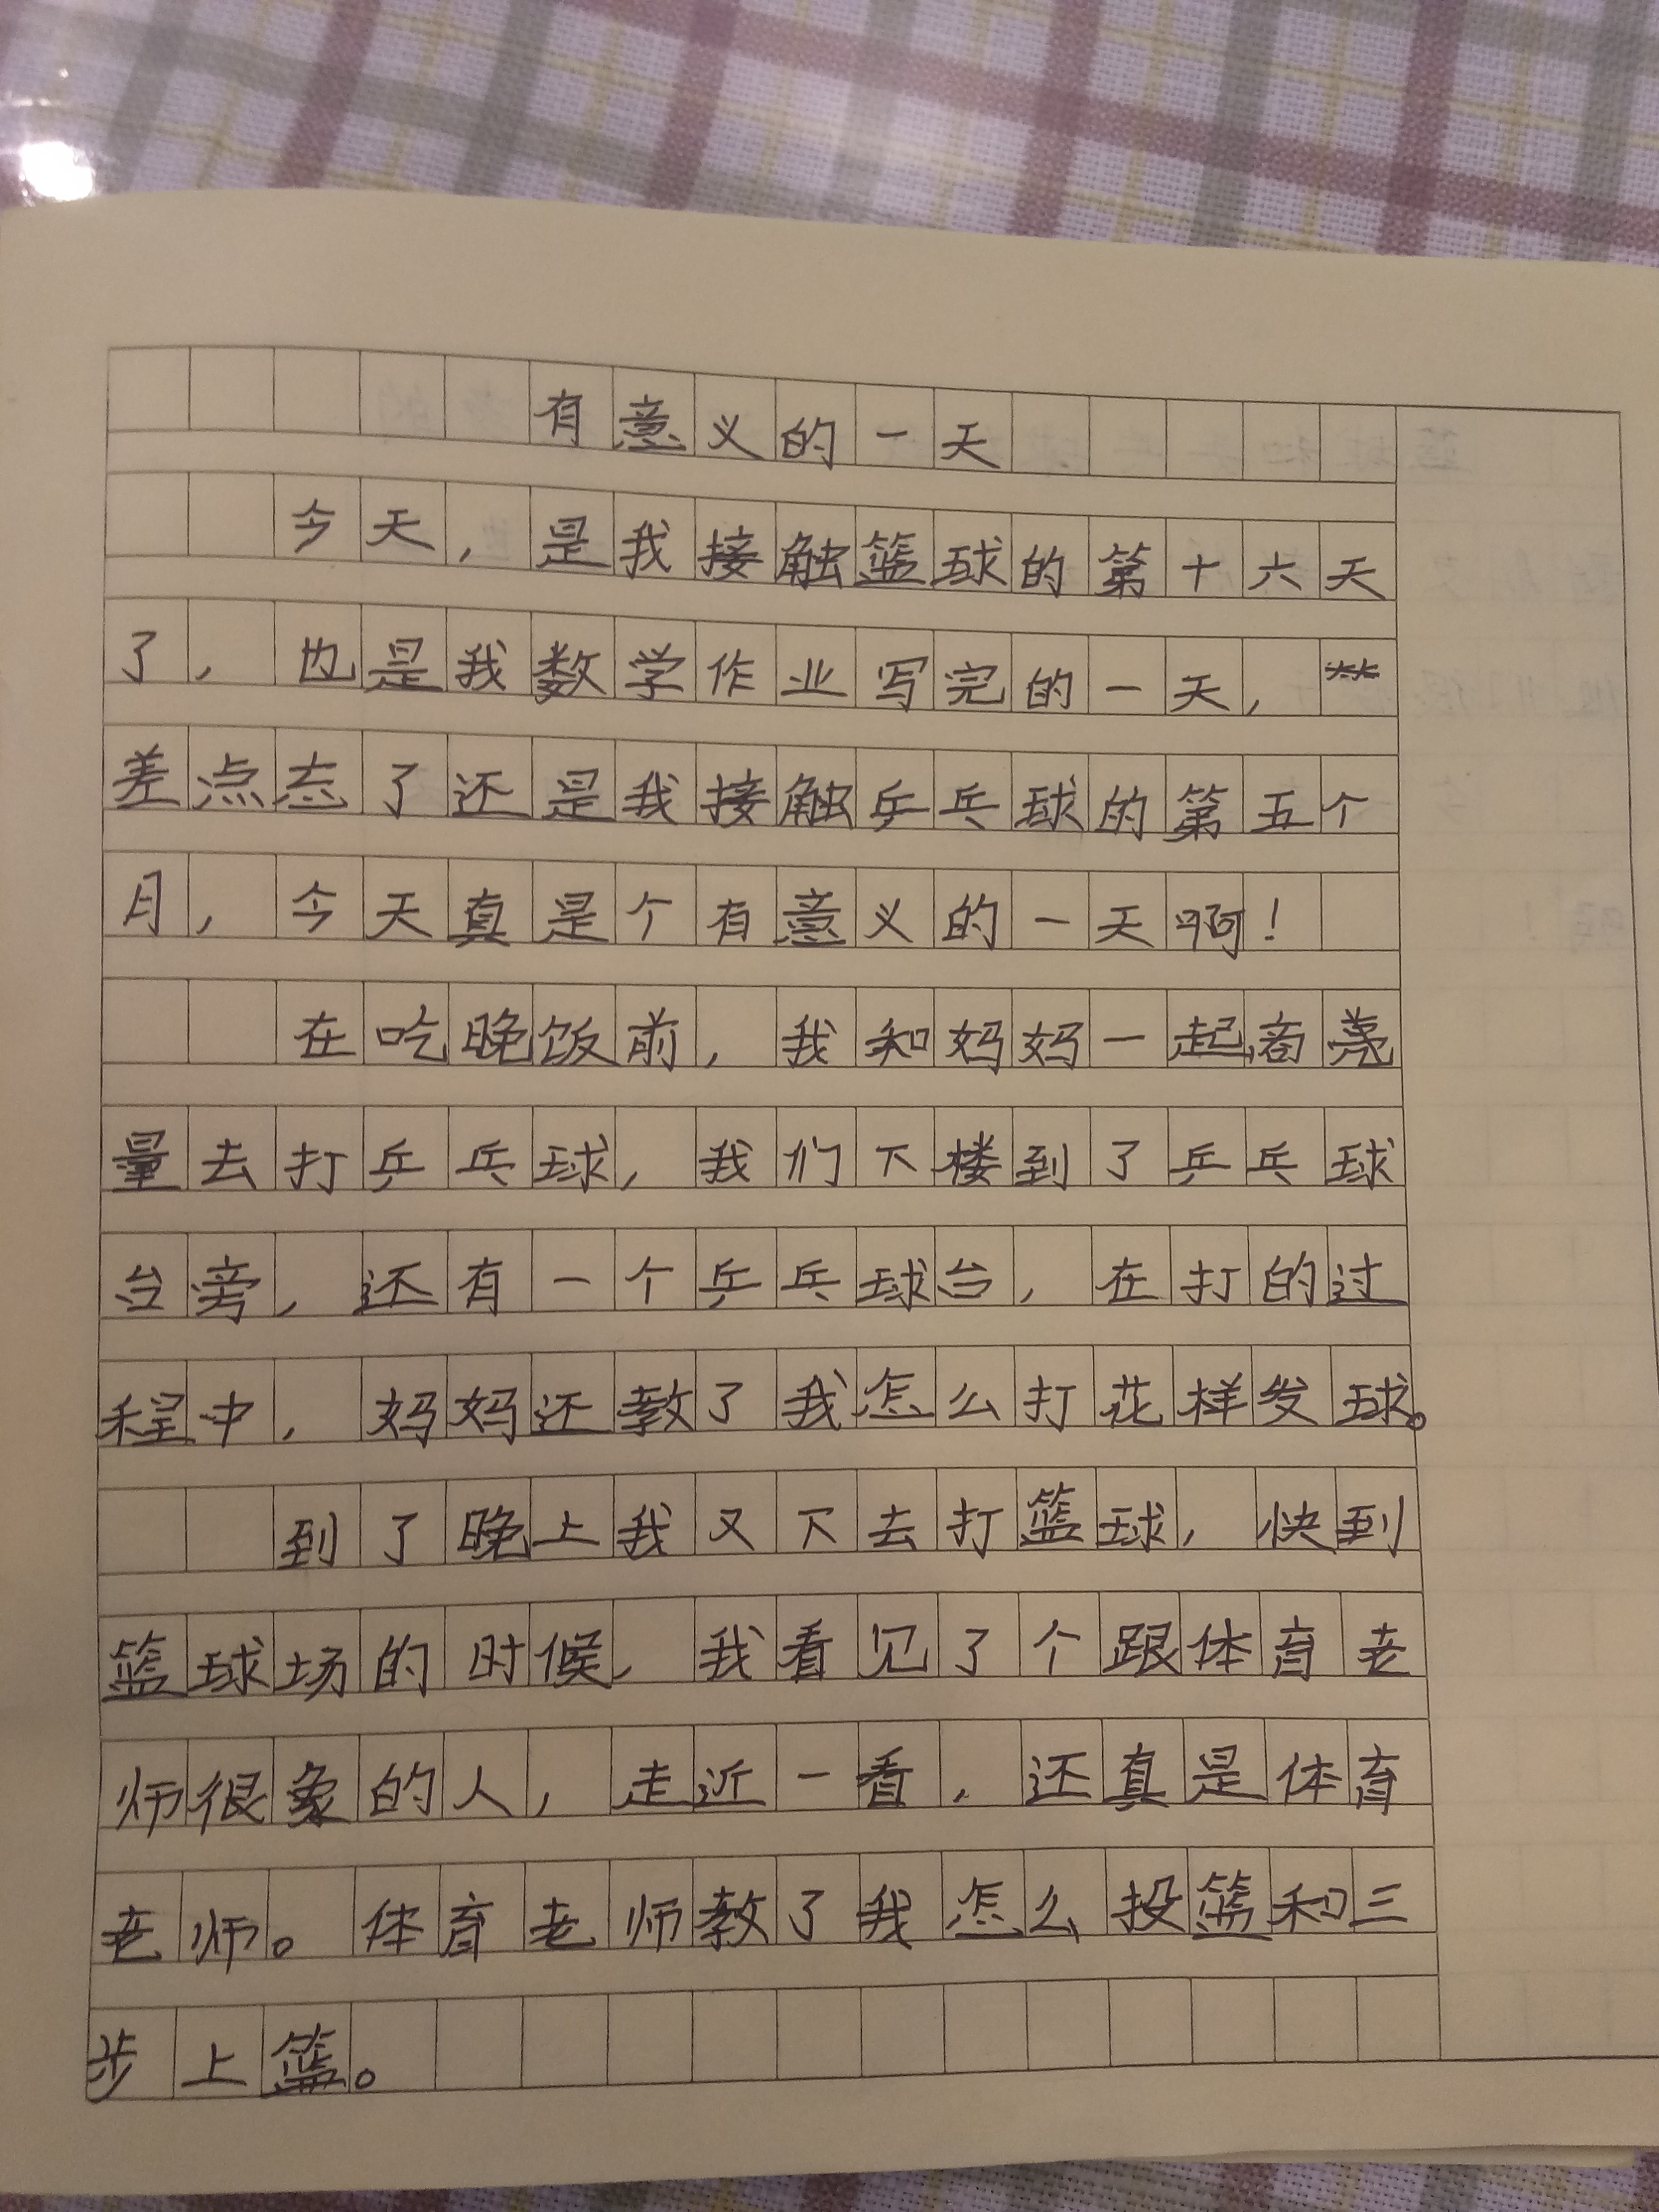 有意义的一天
今天，是我接触篮球的第十六天
了，也是我数学作业写完的一天，
差点忘了还是我接触乒乓球的第五个
月，今天真是个有意义的一天啊！
在吃晚饭前，我和妈妈一起商
量去打乒乓球，我们下楼到了乒乓球
台旁，还有一个乒乓球台，在打的过
程中，妈妈还教了我怎么打花样发球。
到了晚上我又下去打篮球，快到
篮球场的时候，我看见了个跟体育老
师很象的人，走近一看，还真是体育
老师。体育老师教了我怎么投篮和三
步上篮。